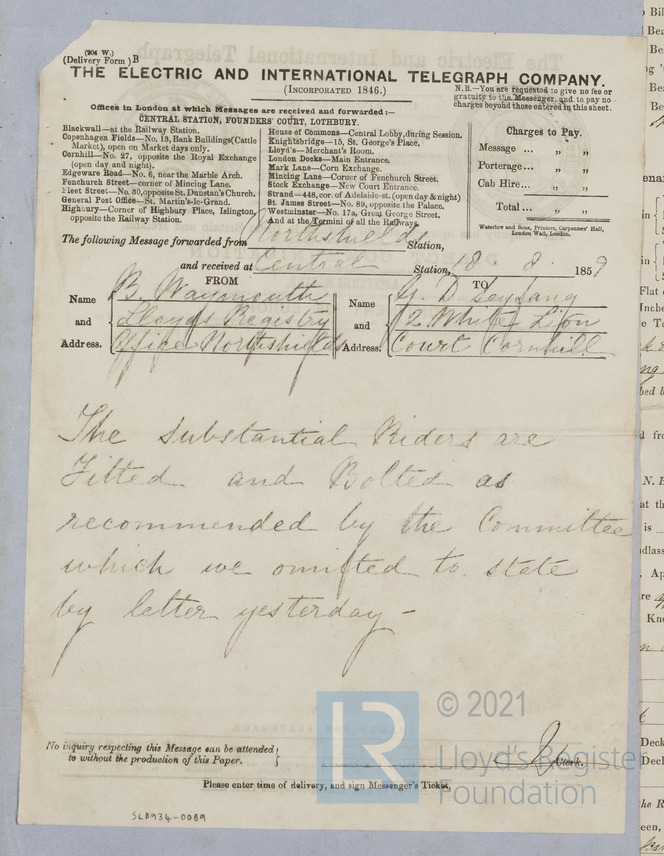 (204 W.)
(Delivery Form) B
THE ELECTRIC AND INTERNATIONAL TELEGRAPH COMPANY.
(INCORPORATED 1846.)
N.B.—You are requested to give no fee or
gratuity to the Messenger, and to pay no
charges beyond those entered in this sheet.
Offices in London at which Messages are received and forwarded:—
CENTRAL STATION, FOUNDERS' COURT, LOTHBURY.
Blackwall—at the Railway Station.
Copenhagen Fields—No. 13, Bank Buildings (Cattle
Market), open on Market days only.
Cornhill—No. 27, opposite the Royal Exchange
(open day and night).
Edgeware Road—No. 6, near the Marble Arch.
Fenchurch Street—corner of Mincing Lane.
Fleet Street—No. 30, opposite St. Dunstan's Church.
General Post Office—St. Martin's-le-Grand.
Highbury—Corner of Highbury Place, Islington,
opposite the Railway Station.
House of Commons—Central Lobby, during Session.
Knightsbridge—15, St. George's Place.
Lloyd's—Merchant's Room.
London Docks—Main Entrance.
Mark Lane—Corn Exchange.
Mincing Lane—Corner of Fenchurch Street.
Stock Exchange—New Court Entrance.
Strand—448, cor. of Adelaide-st. (open day & night)
St. James Street—No. 89, opposite the Palace.
Westminster—No. 17a, Great George Street.
And at the Termini of all the Railways.
Charges to Pay.
Message ... „ „
Porterage... „ „
Cab Hire... „ „
Total... „ „
Waterlow and Sons, Printers, Carpenters' Hall,
London Wall, London.
The following Message forwarded from Northshields Station,
and received at Central Station, 18 . 8 . 1859
FROM
Name and Address.
B. Waymouth
Lloyds Registry
Office Northshields
TO
Name and Address.
G. D Seydang
2 White Lion
Court Cornhill
The substantial Riders are
Fitted and Bolted as
recommended by the Committee
which we omitted to state
by letter yesterday –
No inquiry respecting this Message can be attended
to without the production of this Paper.
Clerk.
Please enter time of delivery, and sign Messenger's Ticket.
SLD934-0089
LR
© 2021
Lloyd's Register
Foundation